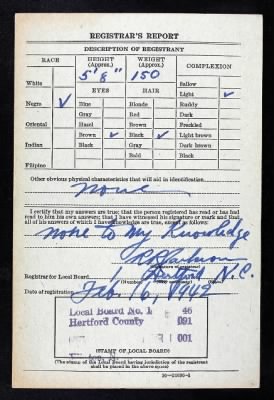 REGISTRAR'S REPORT
DESCRIPTION OF REGISTRANT
RACE HEIGHT (Approx.) WEIGHT (Approx.) COMPLEXION
5' 8" 150
White Sallow
EYES HAIR Light ✓
Negro ✓ Blue Blonde Ruddy
Gray Red Dark
Oriental Hazel Brown Freckled
Brown ✓ Black ✓ Light brown
Indian Black Gray Dark brown
Bald Black
Filipino
Other obvious physical characteristics that will aid in identification
none
I certify that my answers are true; that the person registered has read or has had
read to him his own answers; that I have witnessed his signature or mark and that
all of his answers of which I have knowledge are true, except as follows:
none to my Knowledge
(Signature of registrar)
Registrar for Local Board 1 Hertford N.C.
(Number)
Date of registration Feb. 16, 1942
Local Board No. 1 46
Hertford County 091
001
(STAMP OF LOCAL BOARD)
(The stamp of the Local Board having jurisdiction of the registrant
shall be placed in the above space)